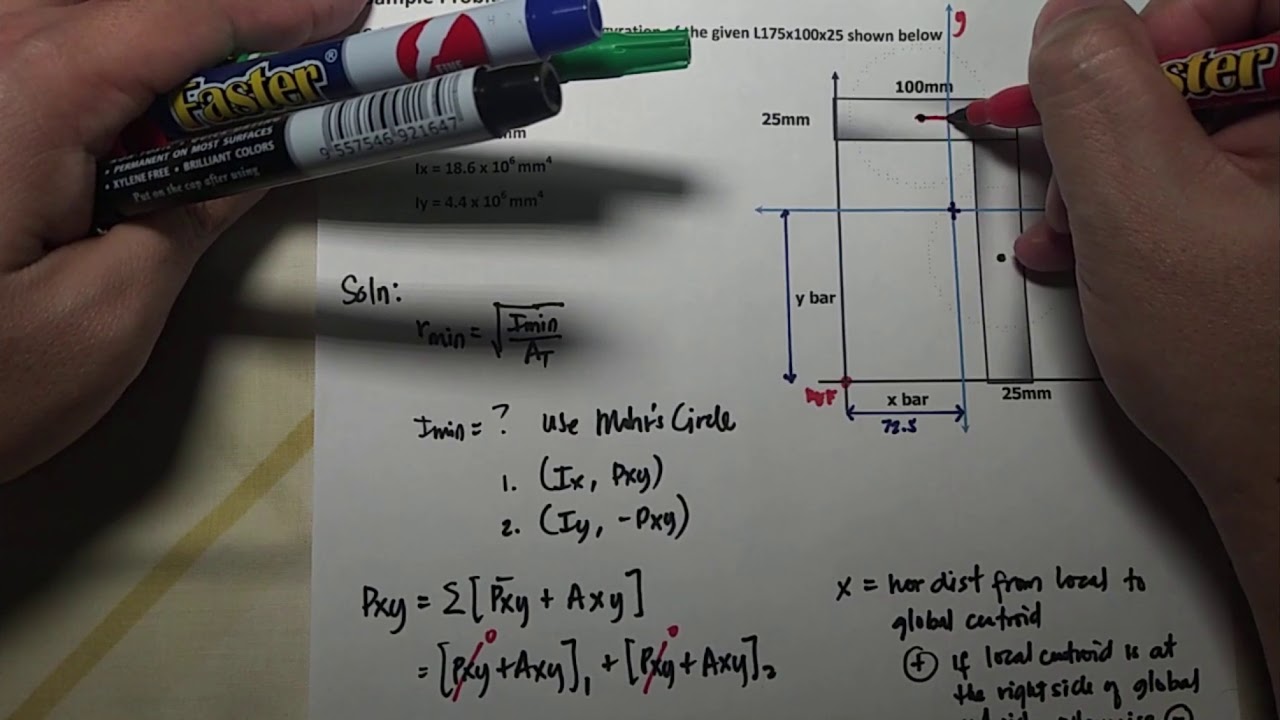 Sample Prob
gyration of the given L175x100x25 shown below
Faster
9 557546 921647
• PERMANENT ON MOST SURFACES
• XYLENE FREE • BRILLIANT COLORS
Put on the cap after using
mm
Ix = 18.6 x 10⁶ mm⁴
Iy = 4.4 x 10⁶ mm⁴
y
100mm
25mm
y bar
x bar
25mm
72.5
Soln:
rmin = √(Imin/AT)
Imin = ? use Mohr's Circle
1. (Ix, Pxy)
2. (Iy, -Pxy)
Pxy = Σ[P̄xy + Axy]
= [Pxy + Axy]₁ + [Pxy + Axy]₂
0 0
x = hor dist from local to
global centroid
⊕ if local centroid is at
the right side of global